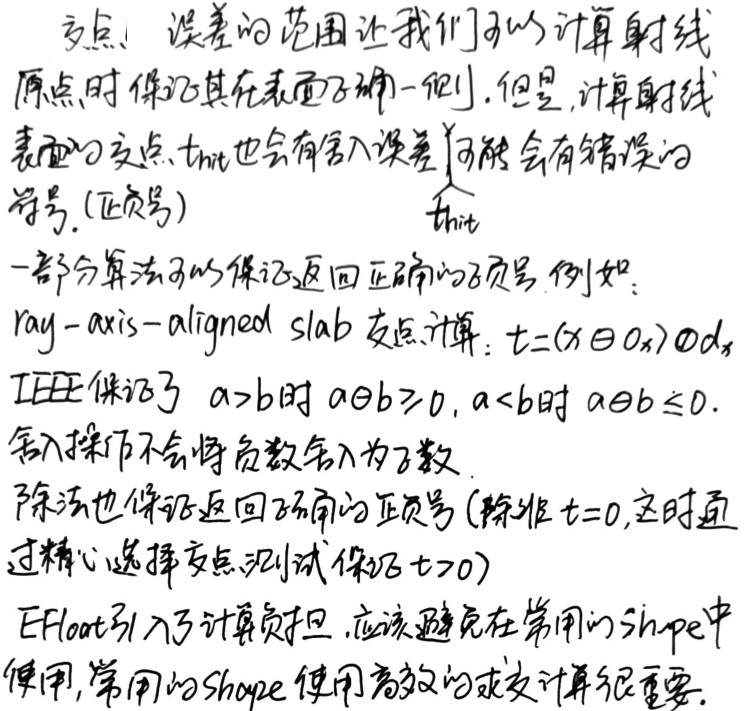 交点! 误差的范围让我们可以计算射线
原点时保证其在表面正确一侧.但是,计算射线
表面的交点thit也会有舍入误差可能会有错误的
符号.(正负号) thit
一部分算法可以保证返回正确的正负号.例如:
ray-axis-aligned slab 交点计算: t=(x⊖Ox)⊘dx
IEEE保证了 a>b时 a⊖b≥0, a<b时 a⊖b≤0.
舍入操作不会将负数舍入为正数.
除法也保证返回正确的正负号(除非t=0,这时通
过精心选择交点测试保证t>0)
EFloat引入了计算负担.应该避免在常用的Shape中
使用,常用的Shape使用高效的求交计算很重要.